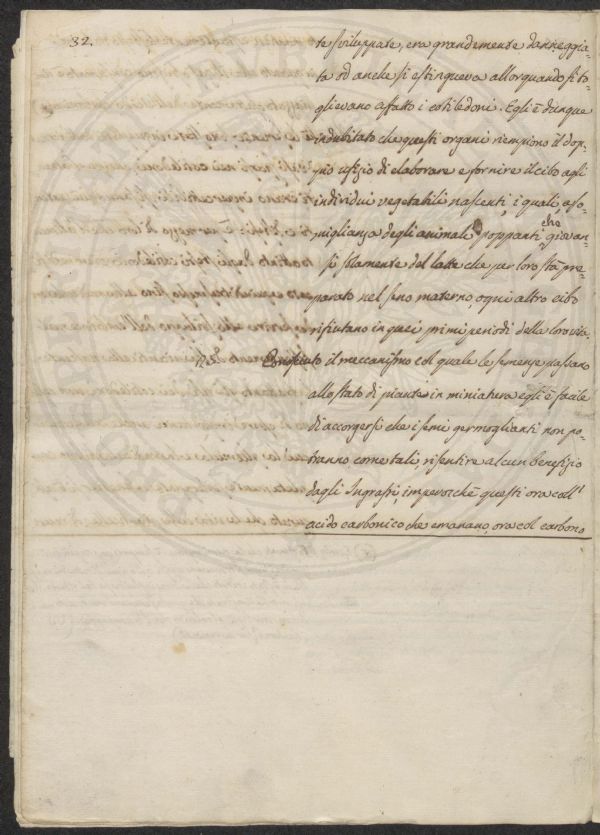 32.
te sviluppate, era grandemente danneggia-
ta od anche si estingueva allorquando si to-
glievano affatto i cotiledoni. Egli è dunque
indubitato che questi organi riempiono il dop-
pio ufizio di elaborare e fornire il cibo agli
individui vegetabili nascenti, i quali a so-
miglianza degli animali poppanti che giovan-
si solamente del latte che per loro stà pre-
parato nel seno materno, ogni altro cibo
rifiutano in quei primi periodi della loro vita.
Conosciuto il meccanismo col quale le semenze passano
allo stato di piante in miniatura egli è facile
di accorgersi che i semi germoglianti non po-
tranno come tali, risentire alcun benefizio
dagli Ingrassi, imperocchè questi ora coll'
acido carbonico che emanano, ora col carbono